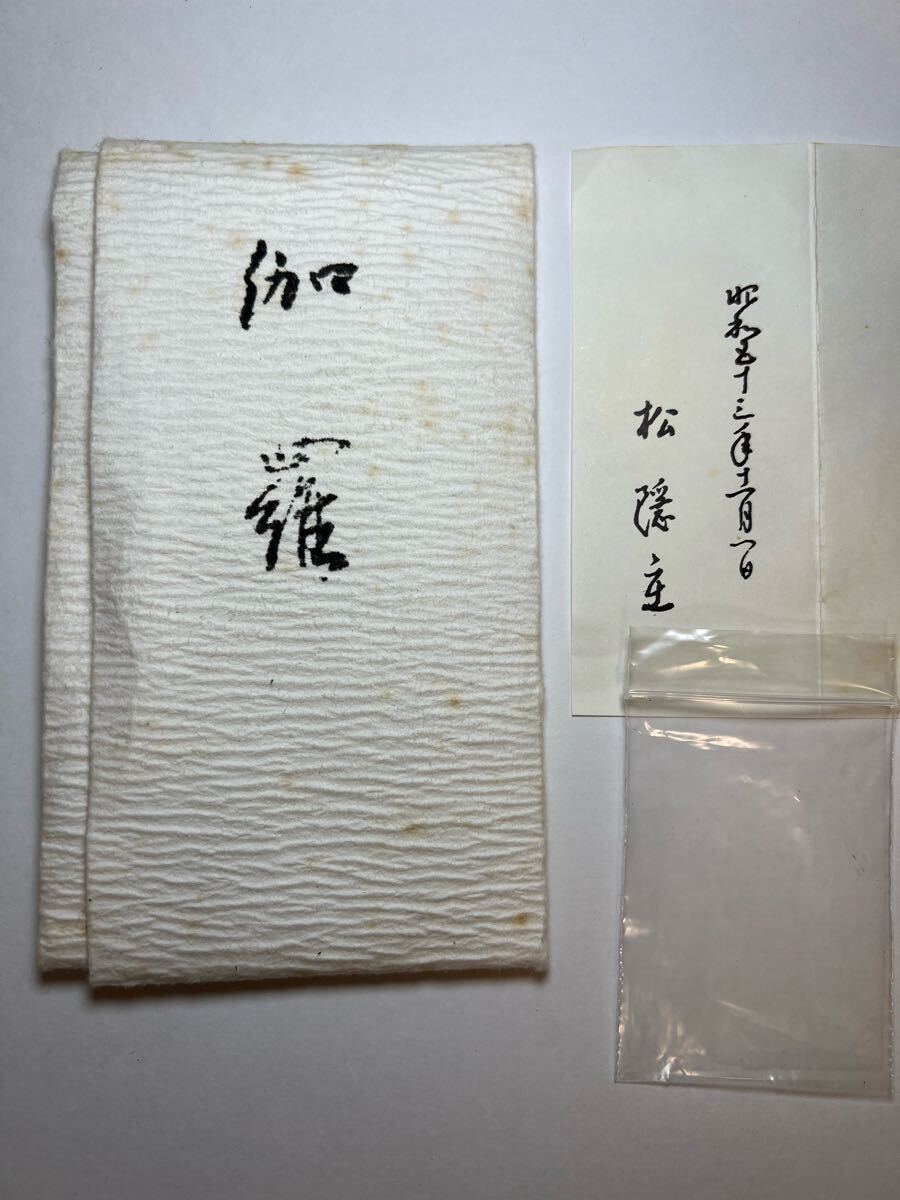 伽羅
昭和五十三年十一月一日
松隠主